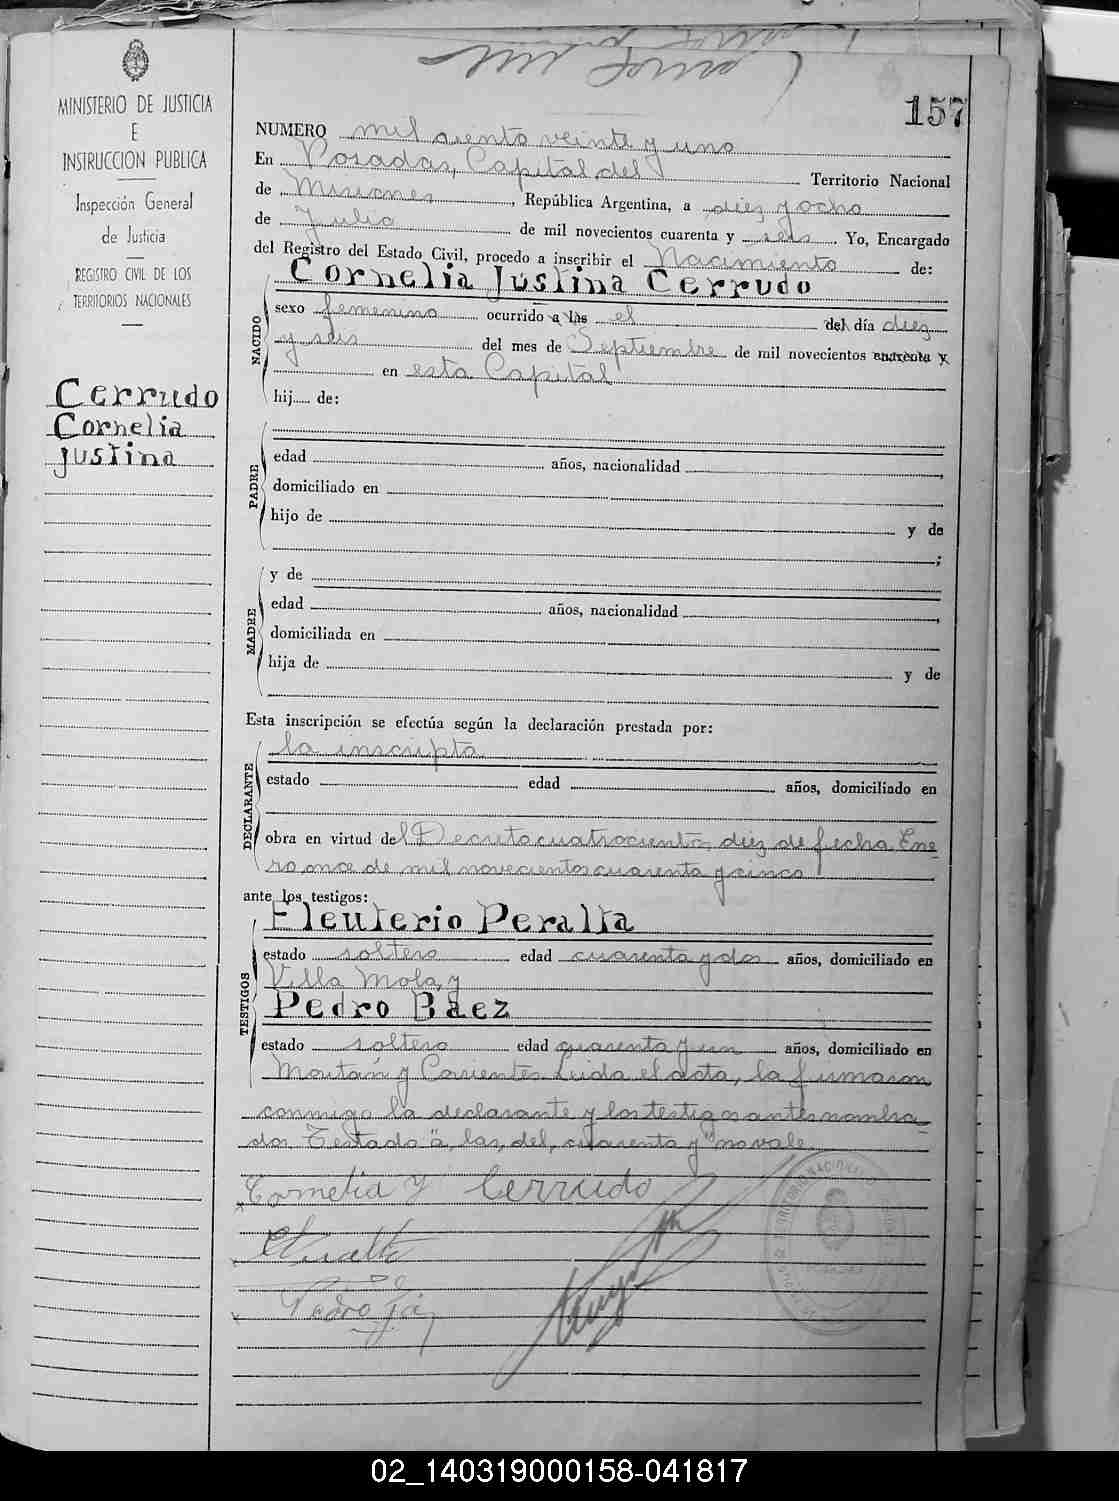 157
MINISTERIO DE JUSTICIA
E
INSTRUCCION PUBLICA
Inspección General
de Justicia
REGISTRO CIVIL DE LOS
TERRITORIOS NACIONALES
Cerrudo
Cornelia
Justina
NUMERO mil ciento veinte y uno
En Posadas, Capital del Territorio Nacional
de Misiones, República Argentina, a diez y ocho
de Julio de mil novecientos cuarenta y seis. Yo, Encargado
del Registro del Estado Civil, procedo a inscribir el Nacimiento de:
Cornelia Justina Cerrudo
NACIDO
sexo femenino ocurrido a las el del día diez
y seis del mes de Septiembre de mil novecientos cuarenta y
en esta Capital
hij..... de:
PADRE
edad años, nacionalidad
domiciliado en
hijo de y de
;
MADRE
y de
edad años, nacionalidad
domiciliada en
hija de y de
Esta inscripción se efectúa según la declaración prestada por:
DECLARANTE
la inscripta
estado edad años, domiciliado en
obra en virtud del Decreto cuatrocientos diez de fecha Ene-
ro once de mil novecientos cuarenta y cinco
ante los testigos:
TESTIGOS
Eleuterio Peralta
estado soltero edad cuarenta y dos años, domiciliado en
Villa Mola, y
Pedro Báez
estado soltero edad cuarenta y un años, domiciliado en
y Corrientes. Leída el acta, la firmaron
conmigo la declarante y los testigos antes nombra-
dos. Testado "a, las, del, cuarenta y" no vale.
Cornelia J Cerrudo
Pedro
02_140319000158-041817